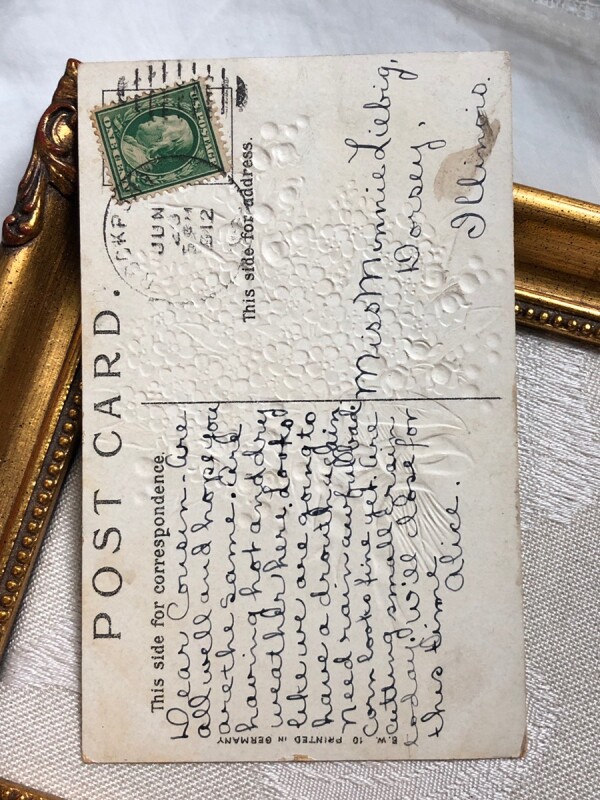 POST CARD.
This side for correspondence.
This side for address.
JUN
23
1912
Dear Cousin. Are
all well and hope you
are the same. Are
having hot and dry
weather here. Looks
like we are going to
have a drouth again
Need rain awful bad
Corn looks fine yet. Are
cutting small grain
today. Will close for
this time
Alice.
Miss Minnie Liebig,
Dorsey,
Illinois.
E.W. 10 PRINTED IN GERMANY